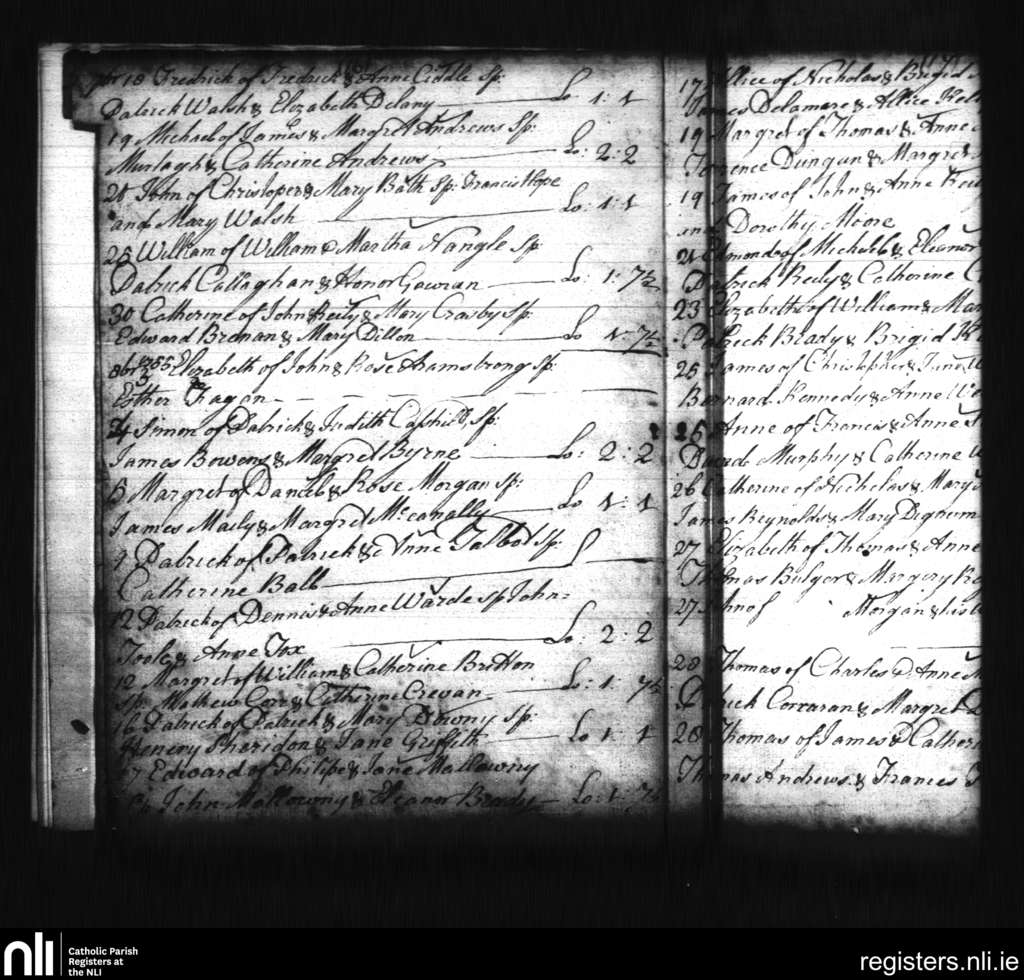 7br 18 Fredrick of Fredrick & Anne Ciddle Sp:
Patrick Walsh & Elizabeth Delany Lo 1: 1
19 Michael of James & Margret Andrews Sp:
Murtagh & Catherine Andrews Lo: 2: 2
20 John of Christoper & Mary Bath Sp: Francis Hope
and Mary Walsh Lo: 1: 1
25 William of William & Martha Nangle Sp:
Patrick Callaghan & Honor Gawran Lo: 1: 7½
30 Catherine of John Reily & Mary Crasby Sp:
Edward Brenan & Mary Dillon Lo 1: 7½
8br 1755 Elizabeth of John & Rose Armstrong Sp:
3
Esther Fagan
4 Simon of Patrick & Judith Sp:
James Bowens & Margret Byrne Lo: 2: 2
5 Margret of Daniel & Rose Morgan sp:
James Maily & Margret Mccanally Lo 1: 1
Patrick of Patrick & Anne Talbot Sp:
Catherine Ball
12 Patrick of Dennis & Anne Warde sp John
Toole & Anne Fox Lo: 2: 2
12 Margret of William & Catherine Britton
Sp: Mathew Corr & Catheryne Crevan Lo: 1: 7½
16 Patrick of Patrick & Mary Downy Sp:
Henery Sheridon & Jane Griffith Lo 1: 1
Edward of Philipe & Jane Mallowny
Sp John Mallowny & Eleanor Brady Lo: 1: 7½
17 Allice of Nicholas & Brigid
James Delamare & Allice
19 Margret of Thomas & Anne
Terrence Dungan & Margret
19 James of John & Anne
and Dorothy Moore
21 Edmond of Michall & Eleanor
Patrick Reily & Catherine
23 Elizabeth of William & Mar
Patrick Brady & Brigid
25 James of Christopher & Jane
Bernard Kennedy & Anne
26 Anne of Francis & Anne
David Murphy & Catherine
26 Catherine of Nicholas & Mary
James Reynolds & Mary Dignum
27 Elizabeth of Thomas & Anne
Thomas Bulger & Margery
27 John of Morgan & his
28 Thomas of Charles & Anne
Patrick Corcaran & Margret
28 Thomas of James & Cather
Thomas Andrews & Frances
nli
Catholic Parish
Registers at
the NLI
registers.nli.ie